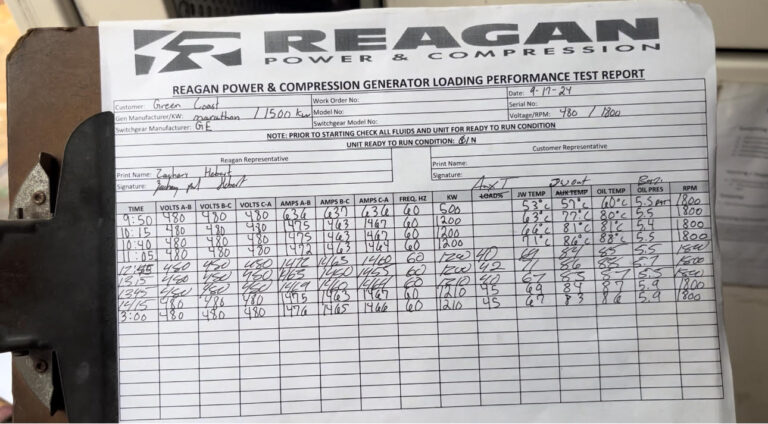 REAGAN
POWER & COMPRESSION
REAGAN POWER & COMPRESSION GENERATOR LOADING PERFORMANCE TEST REPORT
Customer: Green Coast Work Order No: Date: 9-17-24
Gen Manufacturer/KW: marathon / 1500 KW Model No: Serial No:
Switchgear Manufacturer: GE Switchgear Model No: Voltage/RPM: 480 / 1800
NOTE: PRIOR TO STARTING CHECK ALL FLUIDS AND UNIT FOR READY TO RUN CONDITION
UNIT READY TO RUN CONDITION: Y/N
Reagan Representative Customer Representative
Print Name: Print Name:
Signature: Signature:
AxT
TIME VOLTS A-B VOLTS B-C VOLTS C-A AMPS A-B AMPS B-C AMPS C-A FREQ. HZ KW LOAD% JW TEMP AUX TEMP OIL TEMP OIL PRES RPM
9:50 480 480 480 636 637 636 60 500 53°c 57°c 60°c 5.5 1800
10:15 480 480 480 1475 1463 1467 60 1200 63°c 77°c 80°c 5.5 1800
10:40 480 480 480 1475 1463 1467 60 1200 66°c 81°c 81°c 5.4 1800
11:05 480 480 480 1472 1463 1464 60 1200 71°c 86°c 88°c 5.5 1800
480 480 480 1472 1465 1460 60 1200 40 69 84 85 5.5 1800
1315 480 480 480 1460 1455 60 1200 42 5.5 1800
1345 480 480 480 1469 1460 1464 60 1210 40 67 5.5 1800
1415 480 480 480 1475 1463 1467 60 1210 45 69 84 87 5.9 1800
3:00 480 480 480 1476 1465 1466 60 1210 45 67 83 86 5.9 1800